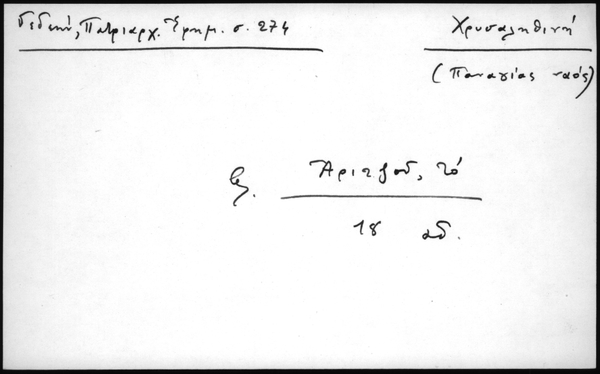 Γεδεών, Πατριαρχ. Ἐφημ. σ. 274
Χρυσαληθινή
(Παναγίας ναός)
Ἀριτζοῦ, τό
18 αδ.